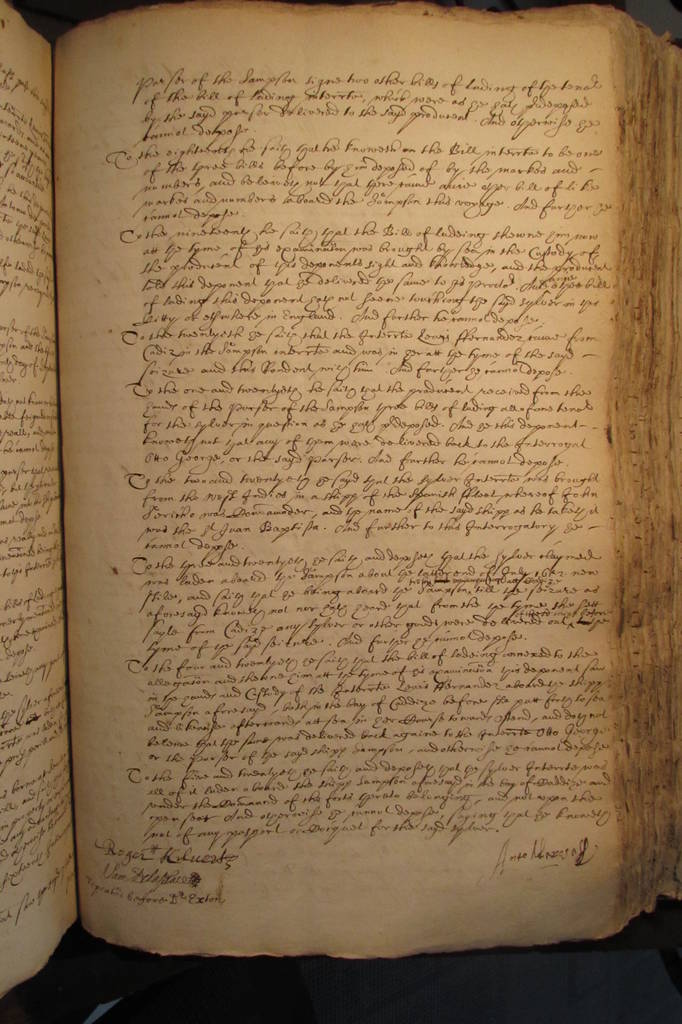 Purser of the Sampson signe two other bills of lading of the tenor
of the bill of lading interrate, which were as he hath deposed
by the sayd purser delivered to the sayd producent. And otherwise he
cannot depose.
To the eighteenth he saith that he knoweth on the Bill interrate to be one
of the three bills before by him deposed of by the markes and
numbers, and beleeveth not that there came anie other bill of like
markes and numbers aboard the Sampson this voyage. And further he
cannot depose.
To the nineteenth he saith that the Bill of ladeing shewne him now
att the tyme of his examination was brought by sea in the Custody of
the producent of this deponents sight and knowledge, and the producent
told this deponent that he delivered the same to his proctor. And other bill
of lading this deponent hath not seene touching the sayd sylver in this
Citty or elsewhere in England. And further he cannot depose.
To the twentyeth he saith that the Interrate Lewis Fernandez came from
Cadiz in the Sampson interrate and was in her att the tyme of the sayd
seizure and this Rendent with him. And further he cannot depose.
To the one and twentyeth he saith that the producent received from the
hands of the Purser of the Sampson three bills of lading all of one tenor
for the sylver in question as he hath deposed. And he this deponent
knoweth not that any of them were delivered back to the Interrogat
Otto George, or the sayd Purser. And further he cannot depose.
To the two and twentyeth he sayth that the sylver Interrate was brought
from the West Indies in a shipp of the Spanish ffleet, whereof John
was Commander, and the name of the sayd shipp as he taketh it
was the St Juan Baptista. And further to this Interrogatory he
cannot depose.
To the three and twentyeth he saith and deposeth that the sylver
was laden aboard the Sampson about the latter end of July 1652 new
stile, and saith that he being aboard the Sampson till the seizure as
aforesayd knoweth not nor hath heard that from the tyme the sett
sayle from Cadiz any sylver or other goods were delivered out
tyme of the sayd seizure. And further he cannot depose.
To the foure and twentyeth he saith that the bill of ladeing annexed to the
allegation and shewne him att the tyme of his examination this deponent saw
in the hands and Custody of the Interrate Lewis Hernandez aboard the shipp
Sampson aforesayd, both in the bay of Caddiz before she putt forth to sea
and likewise afterwards att sea in her Course towards, and doth not
beleeve that the same was delivered back againe to the Interrate Otto George
or the purser of the sayd shipp Sampson, and otherwise he cannot depose
To the five and twentyeth he saith and deposeth that the sylver Interrate was
all of it laden aboard the shipp Sampson aforesayd in the bay of Caddiz and
under the Command of the forts thereto belonging, and not upon the
open sea. And otherwise he cannot depose, saying that he knoweth
not of any pasport or for the sayd sylver.
Roger Kilvert
before Dr Exton